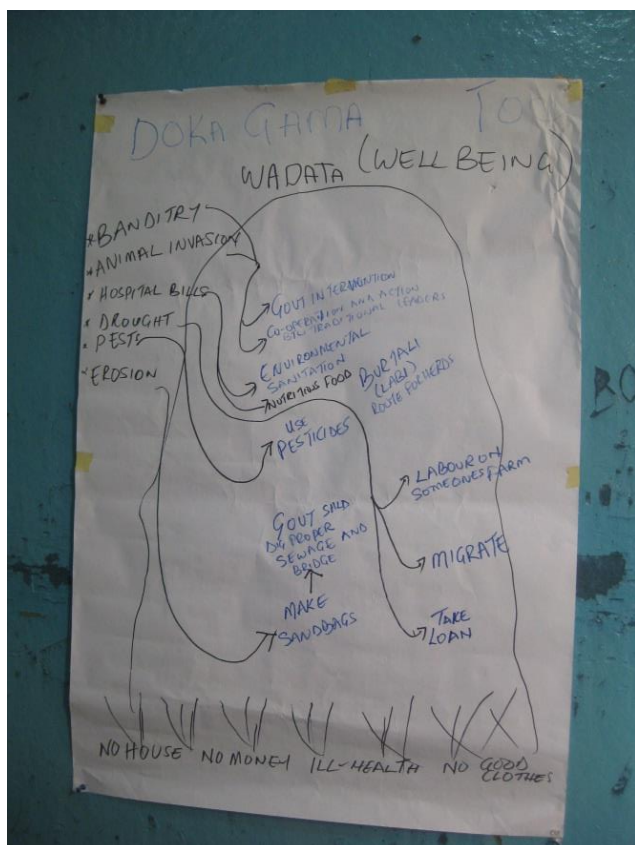 DOKA GAMA
WADATA (WELL BEING)
* BANDITRY
* ANIMAL INVASION
* HOSPITAL BILLS
* DROUGHT
* PESTS
* EROSION
GOVT INTERVENTION
CO-OPERATION AND ACTION
BTW TRADITIONAL LEADERS
ENVIRONMENTAL
SANITATION
NUTRITIOUS FOOD
BURTALI
(LABI)
ROUTE FOR HERDS
USE
PESTICIDES
LABOUR ON
SOMEONES FARM
GOVT SHLD
DIG PROPER
SEWAGE AND
BRIDGE
MIGRATE
MAKE
SANDBAGS
TAKE
LOAN
NO HOUSE NO MONEY ILL-HEALTH NO GOOD
CLOTHES